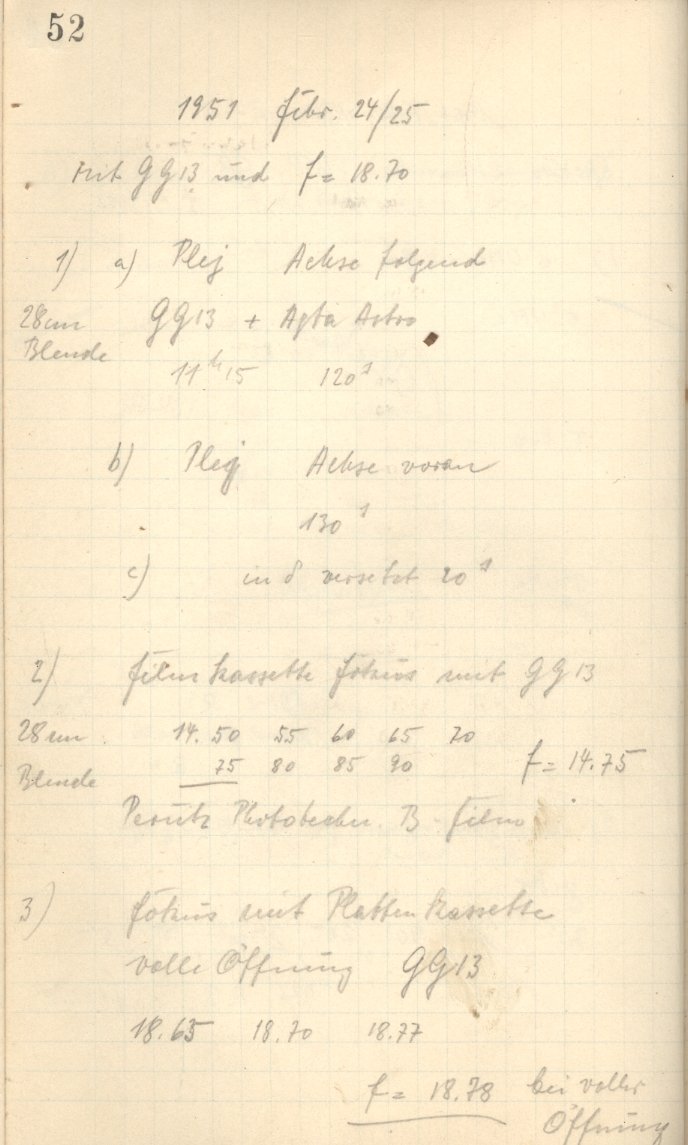 52
1951 Febr. 24/25
Mit GG13 und f = 18.70
1) a) Plej Achse folgend
28cm GG13 + Agfa Astro
Blende
11h15 120s
b) Plej Achse voran
130s
c) in δ versetzt 20s
2) Filmkassette Fokus mit GG13
28cm 14.50 55 60 65 70
75 80 85 90 f = 14.75
Blende
Perutz Phototechn. B-Film
3) Fokus mit Plattenkassette
volle Öffnung GG13
18.65 18.70 18.77
f = 18.78 bei voller
Öffnung